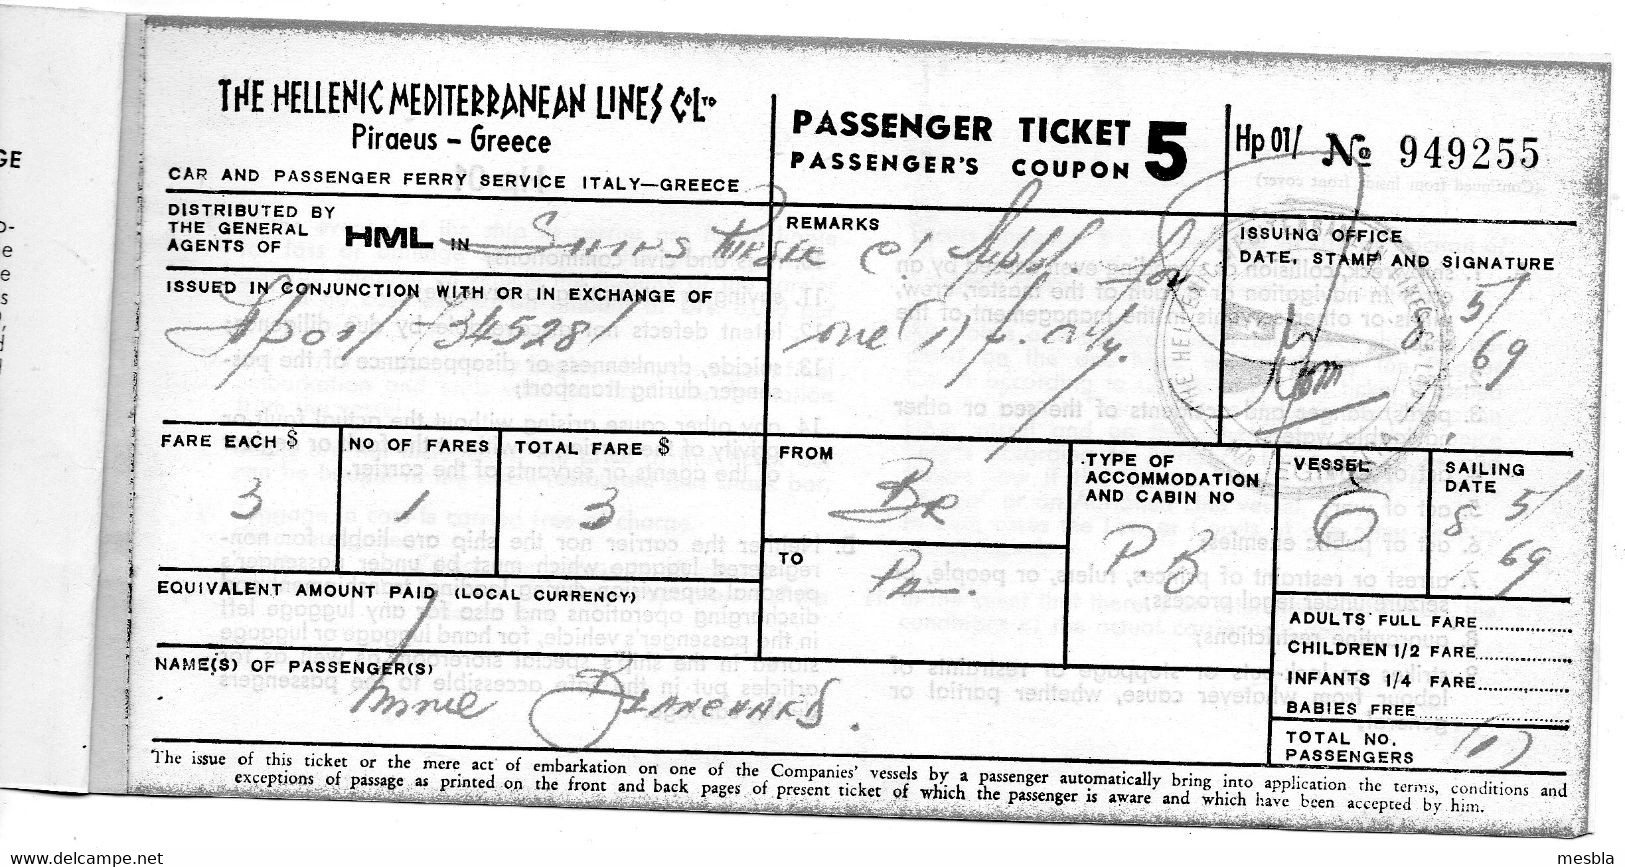 THE HELLENIC MEDITERRANEAN LINES Co LTD
Piraeus – Greece
CAR AND PASSENGER FERRY SERVICE ITALY—GREECE
PASSENGER TICKET 5
PASSENGER'S COUPON
Hp 01/ No 949255
DISTRIBUTED BY
THE GENERAL
AGENTS OF HML IN
REMARKS
one
ISSUING OFFICE
DATE, STAMP AND SIGNATURE
8/5/69
ISSUED IN CONJUNCTION WITH OR IN EXCHANGE OF
/345281
FARE EACH $
3
NO OF FARES
1
TOTAL FARE $
3
FROM
BR
TO
PA.
TYPE OF
ACCOMMODATION
AND CABIN NO
P B
VESSEL
SAILING
DATE
8/5/69
EQUIVALENT AMOUNT PAID (LOCAL CURRENCY)
NAME(S) OF PASSENGER(S)
BLANCHARD.
ADULTS FULL FARE
CHILDREN 1/2 FARE
INFANTS 1/4 FARE
BABIES FREE
TOTAL NO.
PASSENGERS (1)
The issue of this ticket or the mere act of embarkation on one of the Companies' vessels by a passenger automatically bring into application the terms, conditions and
exceptions of passage as printed on the front and back pages of present ticket of which the passenger is aware and which have been accepted by him.
www.delcampe.net
mesbla